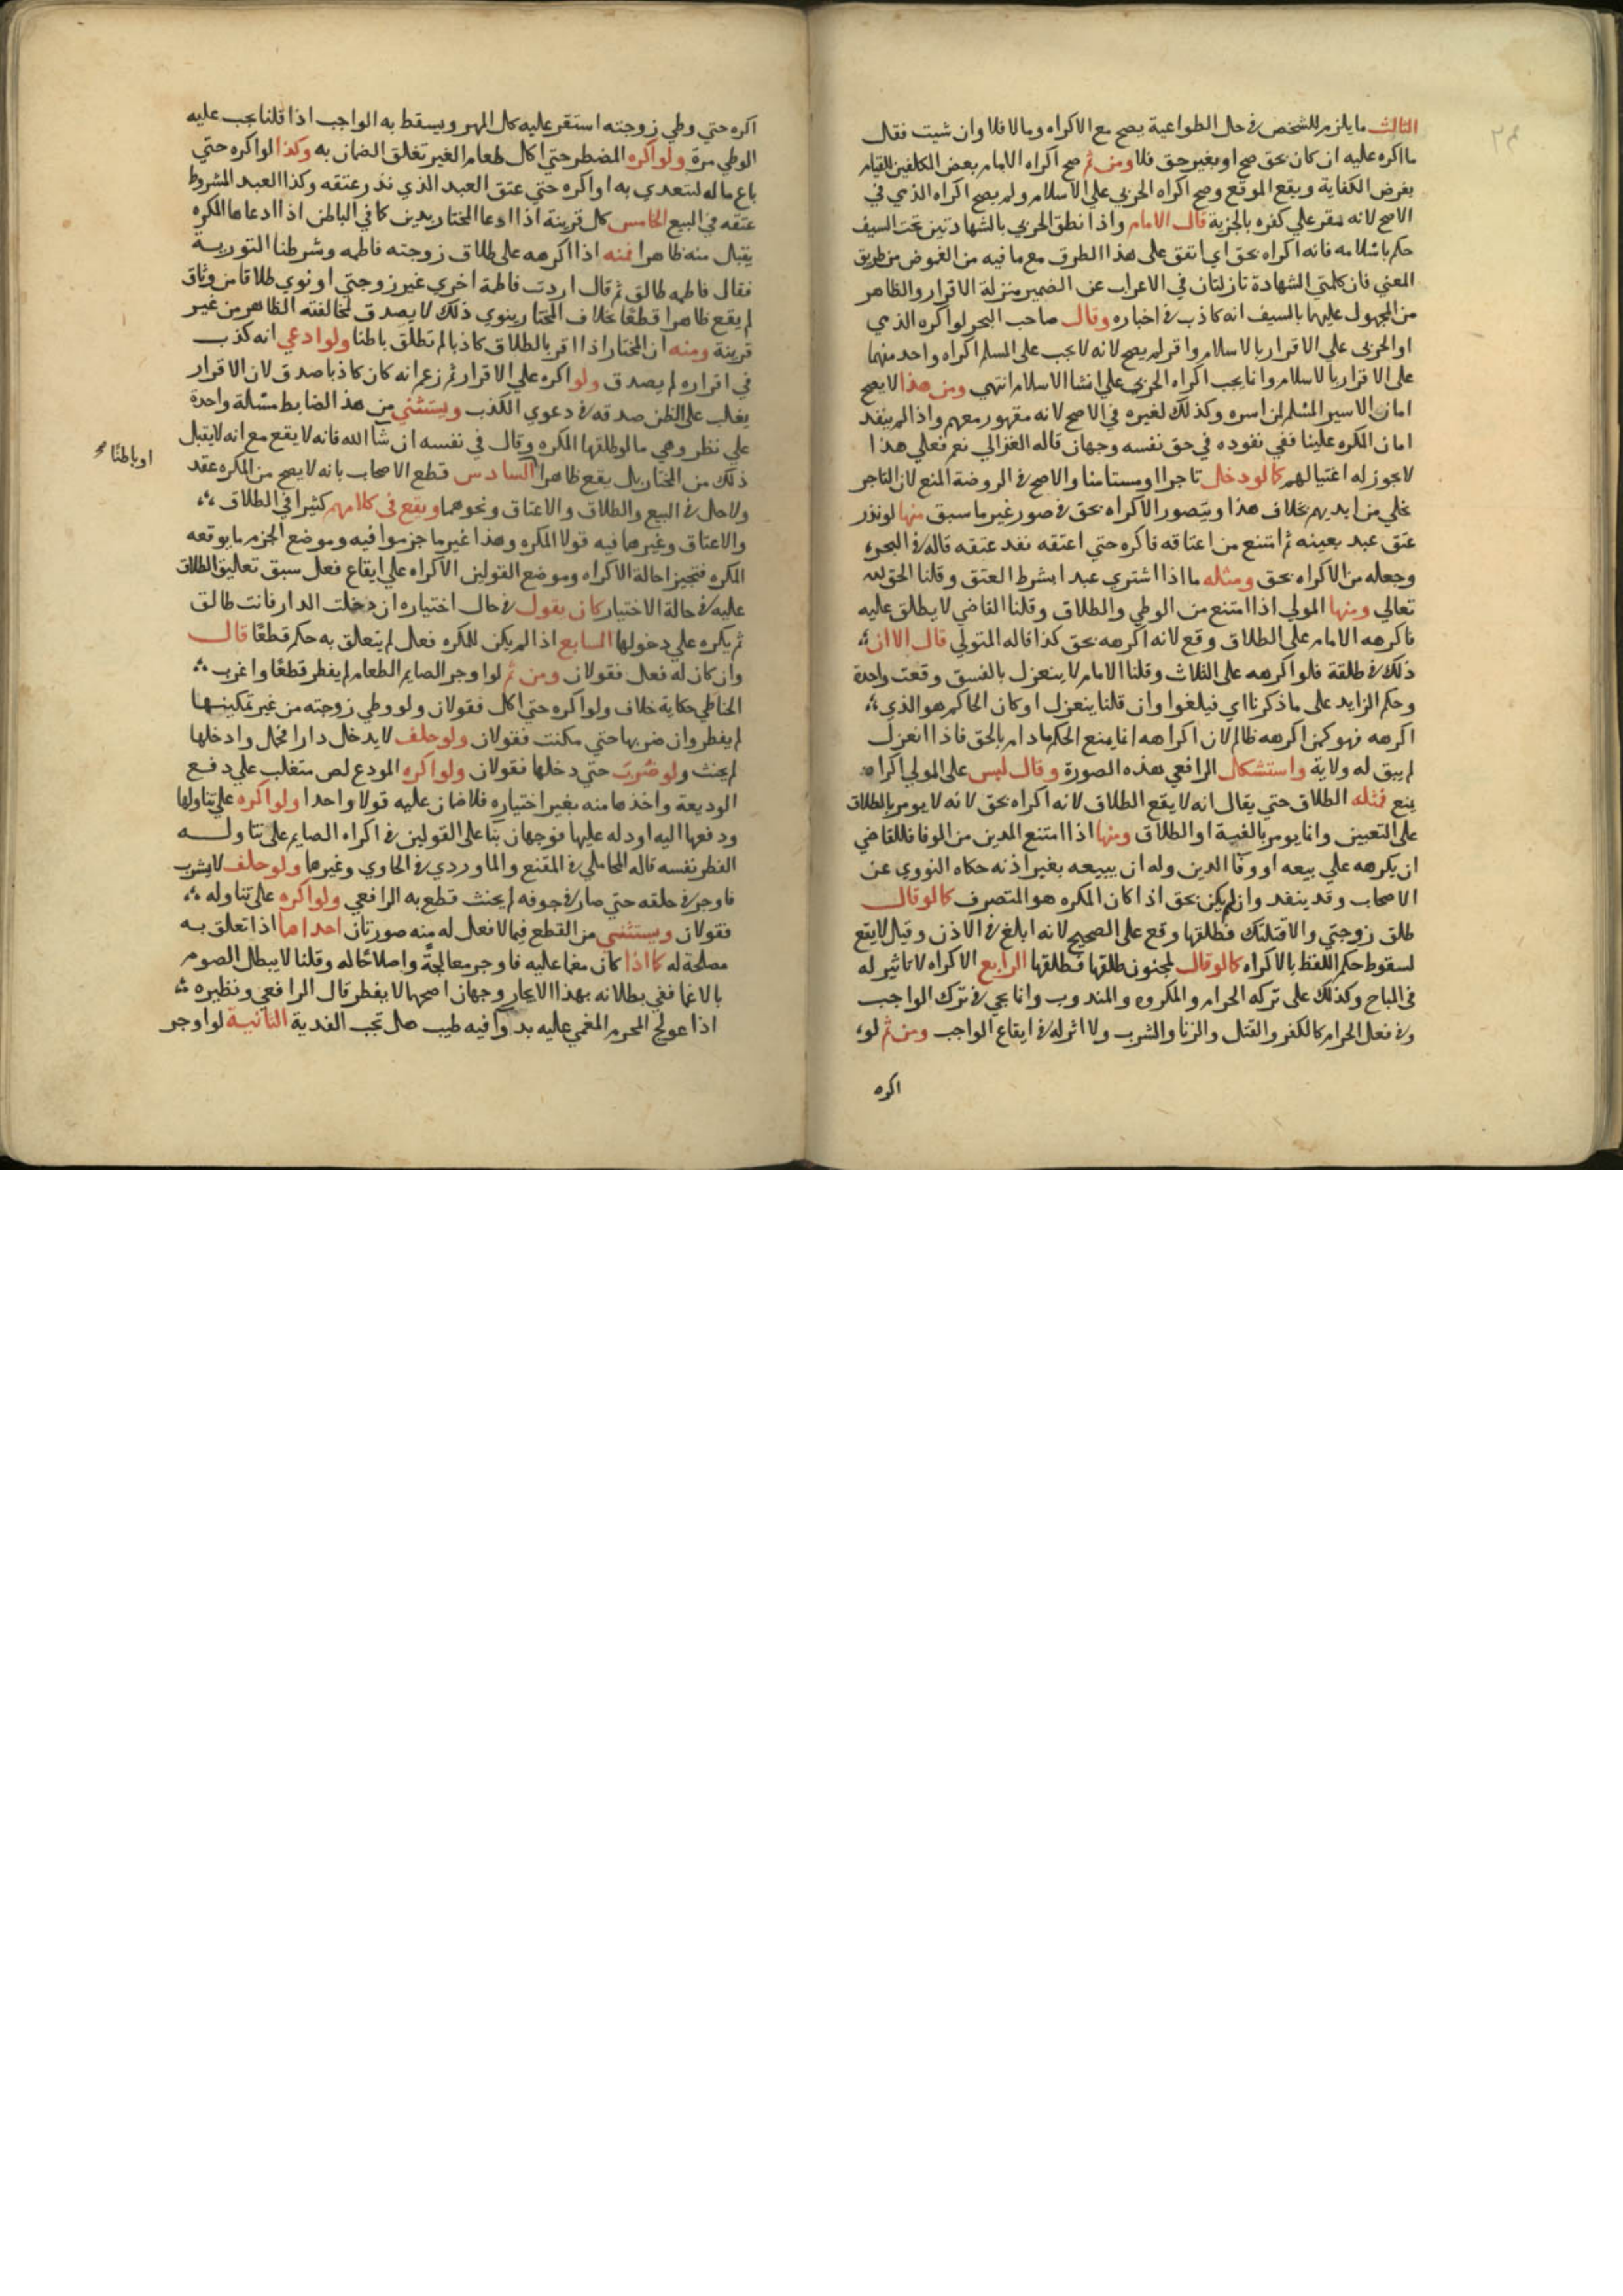 الثالث ما يلزم للشخص في حال الطواعية يصح مع الاكراه وما لا فلا وان شيت فقال
ما اكره عليه ان كان بحق صح او بغير حق فلا ومن ثم صح اكراه الامام بعض المكلفين للقيام
بفرض الكفاية ويقع الموقع وصح اكراه الحربي علي الاسلام ولم يصح اكراه الذمي في
الاصح لانه مقر علي كفره بالجزية قال الامام واذا نطق الحربي بالشهادتين تحت السيف
حكم باسلامه فانه اكراه بحق اي اتفق على هذا الطرق مع ما فيه من الغموض من طريق
المعني فان كلمتي الشهادة نازلتان في الاعراب عن الضمير منزلة الاقرار والظاهر
من المجهول عليها بالسيف انه كاذب في اخباره وقال صاحب البحر لو اكره الذمي
او الحربي علي الاقرار بالاسلام واقر لم يصح لانه لا يجب على المسلم اكراه واحد منهما
على الاقرار بالاسلام وانما يجب اكراه الحربي علي انشا الاسلام انتهي ومن هذا لا يصح
امان الاسير المسلم لمن اسره وكذلك لغيره في الاصح لانه مقهور معهم واذا لم ينفد
امان المكره علينا ففي نفوده في حق نفسه وجهان قاله الغزالي نعم فعلي هذا
لا يجوز له اغتيالهم كما لو دخل تاجرا او مستامنا والاصح في الروضة المنع لان التاجر
تخلي من ايديهم بخلاف هذا ويتصور الاكراه بحق في صور غير ما سبق منها لو نذر
عتق عبد بعينه ثم امتنع من اعتاقه فاكره حتي اعتقه نفد عتقه قاله في البحر
وجعله من الاكراه بحق ومثله ما اذا اشتري عبدا بشرط العتق وقلنا الحق لله
تعالي ومنها المولي اذا امتنع من الوطي والطلاق وقلنا القاضي لا يطلق عليه
فاكرهه الامام على الطلاق وقع لانه اكرهه بحق كذا قاله المتولي قال الا ان
ذلك في طلقة فلو اكرهه على الثلاث وقلنا الامام لا ينعزل بالفسق وقعت واحدة
وحكم الزايد على ما ذكرنا اي فيلغوا وان قلنا ينعزل او كان الحاكم هو الذي
اكرهه فهو كمن اكرهه ظالم لان اكراهه انما يمنع الحكم ما دام بالحق فاذا انعزل
لم يبق له ولاية واستشكل الرافعي هذه الصورة وقال ليس على المولي اكراه
يمنع فمثله الطلاق حتي يقال انه لا يقع الطلاق لانه اكراه بحق لانه لا يومر بالطلاق
على التعيين وانما يومر بالفية او الطلاق ومنها اذا امتنع المدين من الوفا فللقاضي
ان يكرهه علي بيعه او وفا الدين وله ان يبيعه بغير اذنه حكاه النووي عن
الاصحاب وقد ينفد وان لم يكن بحق اذا كان المكره هو المتصرف كما لو قال
طلق زوجتي والا قتلتك فطلقها وقع على الصحيح لانه ابلغ في الاذن وقيل لا يقع
لسقوط حكم اللفظ بالاكراه كما لو قال لمجنون طلقها فطلقها الرابع الاكراه لا تاثير له
في المباح وكذلك على تركه الحرام والمكروه والمندوب وانما يجي في ترك الواجب
وفي فعل الحرام كالكفر والقتل والزنا والشرب ولا اثر له في ايقاع الواجب ومن ثم لو
اكره
اكره حتي وطي زوجته استقر عليه كل المهر ويسقط به الواجب اذا قلنا يجب عليه
الوطي مرة ولو اكره المضطر حتي اكل طعام الغير تعلق الضمان به وكذا لو اكره حتي
باع ماله لتعدي به او اكره حتي عتق العبد الذي نذر عتقه وكذا العبد المشروط
عتقه في البيع الخامس كل قرينة اذا ادعا المختار يدين كما في الباطن اذا ادعاها المكره
يقبل منه ظاهرا فمنه اذا اكرهه على طلاق زوجته فاطمه وشرطنا التورية
فقال فاطمه طالق ثم قال اردت فاطمة اخري غير زوجتي او نوي طلاقا من وثاق
لم يقع ظاهرا قطعا خلاف المختار ينوي ذلك لا يصدق لمخالفته الظاهر من غير
قرينة ومنه ان المختار اذا اقر بالطلاق كاذبا لم تطلق باطنا ولو ادعي انه كذب
في اقراره لم يصدق ولو اكره علي الاقرار ثم زعم انه كان كاذبا صدق لان الاقرار
يغلب على الظن صدقه في دعوي الكذب ويستثني من هذ الضابط مسئلة واحدة
علي نظر وهي ما لو طلقها المكره وقال في نفسه ان شا الله فانه لا يقع مع انه لا يقبل
ذلك من المختار بل يقع ظاهرا السادس قطع الاصحاب بانه لا يصح من المكره عقد
او باطنا صح
ولا حل في البيع والطلاق والاعتاق ونحوهما ويقع في كلامهم كثيرا في الطلاق
والاعتاق وغيرهما فيه قولا المكره وهذا غير ما جزموا فيه وموضع الجزم ما يوقعه
المكره فتجيز احالة الاكراه وموضع القولين الاكراه علي ايقاع فعل سبق تعاليق الطلاق
عليه في حالة الاختيار كان يقول في حال اختياره ان دخلت الدار فانت طالق
ثم يكره علي دخولها السابع اذا لم يكن للمكره فعل لم يتعلق به حكم قطعا قال
وان كان له فعل فقولان ومن ثم لو اوجر الصايم الطعام لم يفطر قطعا واغرب
الحناطي حكاية خلاف ولو اكره حتي اكل فقولان ولو وطي زوجته من غير تمكينها
لم يفطر وان ضربها حتي مكنت فقولان ولو حلف لا يدخل دارا فحمل وادخلها
لم يحنث ولو ضرب حتي دخلها فقولان ولو اكره المودع لص متغلب علي دفع
الوديعة واخذها منه بغير اختياره فلا ضمان عليه قولا واحدا ولو اكره على تناولها
ودفعها اليه او دله عليها فوجهان بنا على القولين في اكراه الصايم على تناوله
الفطر نفسه قاله المحاملي في المقنع والماوردي في الحاوي وغيرها ولو حلف لا يشرب
فاوجر في حلقه حتي صار في جوفه لم يحنث قطع به الرافعي ولو اكره على تناوله
فقولان ويستثني من القطع فيما لا فعل له منه صورتان احداها اذا تعلق به
مصلحة له كما اذا كان مغما عليه فاوجر معالجة واصلاحا له وقلنا لا يبطل الصوم
بالاغما ففي بطلانه بهذا الايجار وجهان اصحهما لا يفطر قال الرافعي ونظيره
اذا عولج المحرم المغمي عليه بدوآ فيه طيب هل تجب الفدية الثانية لو اوجر